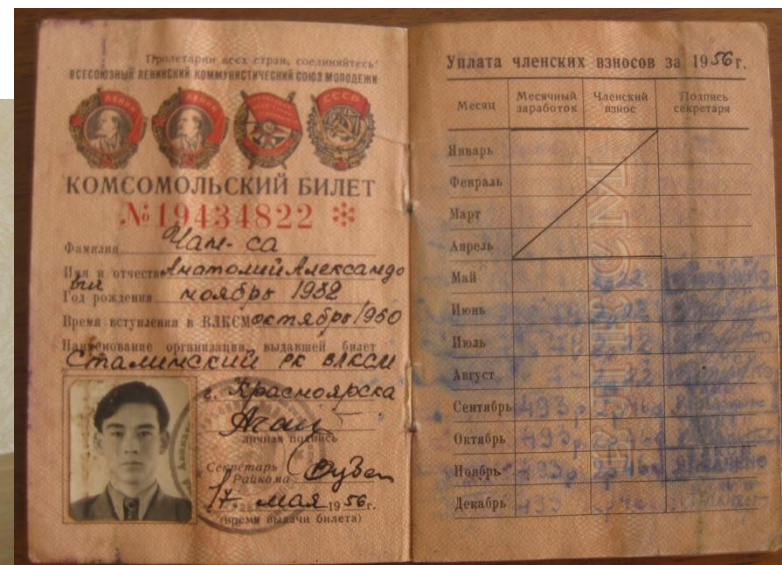 Пролетарии всех стран, соединяйтесь!
ВСЕСОЮЗНЫЙ ЛЕНИНСКИЙ КОММУНИСТИЧЕСКИЙ СОЮЗ МОЛОДЕЖИ
ЛЕНИН ЛЕНИН СССР
КОМСОМОЛЬСКИЙ БИЛЕТ
№ 19434822
Фамилия Чам-са
Имя и отчество Анатолий Александро
вич
Год рождения ноябрь 1932
Время вступления в ВЛКСМ октябрь 1950
Наименование организации, выдавшей билет
Сталинский РК ВЛКСМ
г. Красноярска
личная подпись
Секретарь
Райкома
17 мая 1956 г.
(время выдачи билета)
Уплата членских взносов за 1956 г.
Месяц
Месячный заработок
Членский взнос
Подпись секретаря
Январь
Февраль
Март
Апрель
Май
Июнь
Июль
Август
Сентябрь 493р
Октябрь 493р
Ноябрь 493р
Декабрь 493